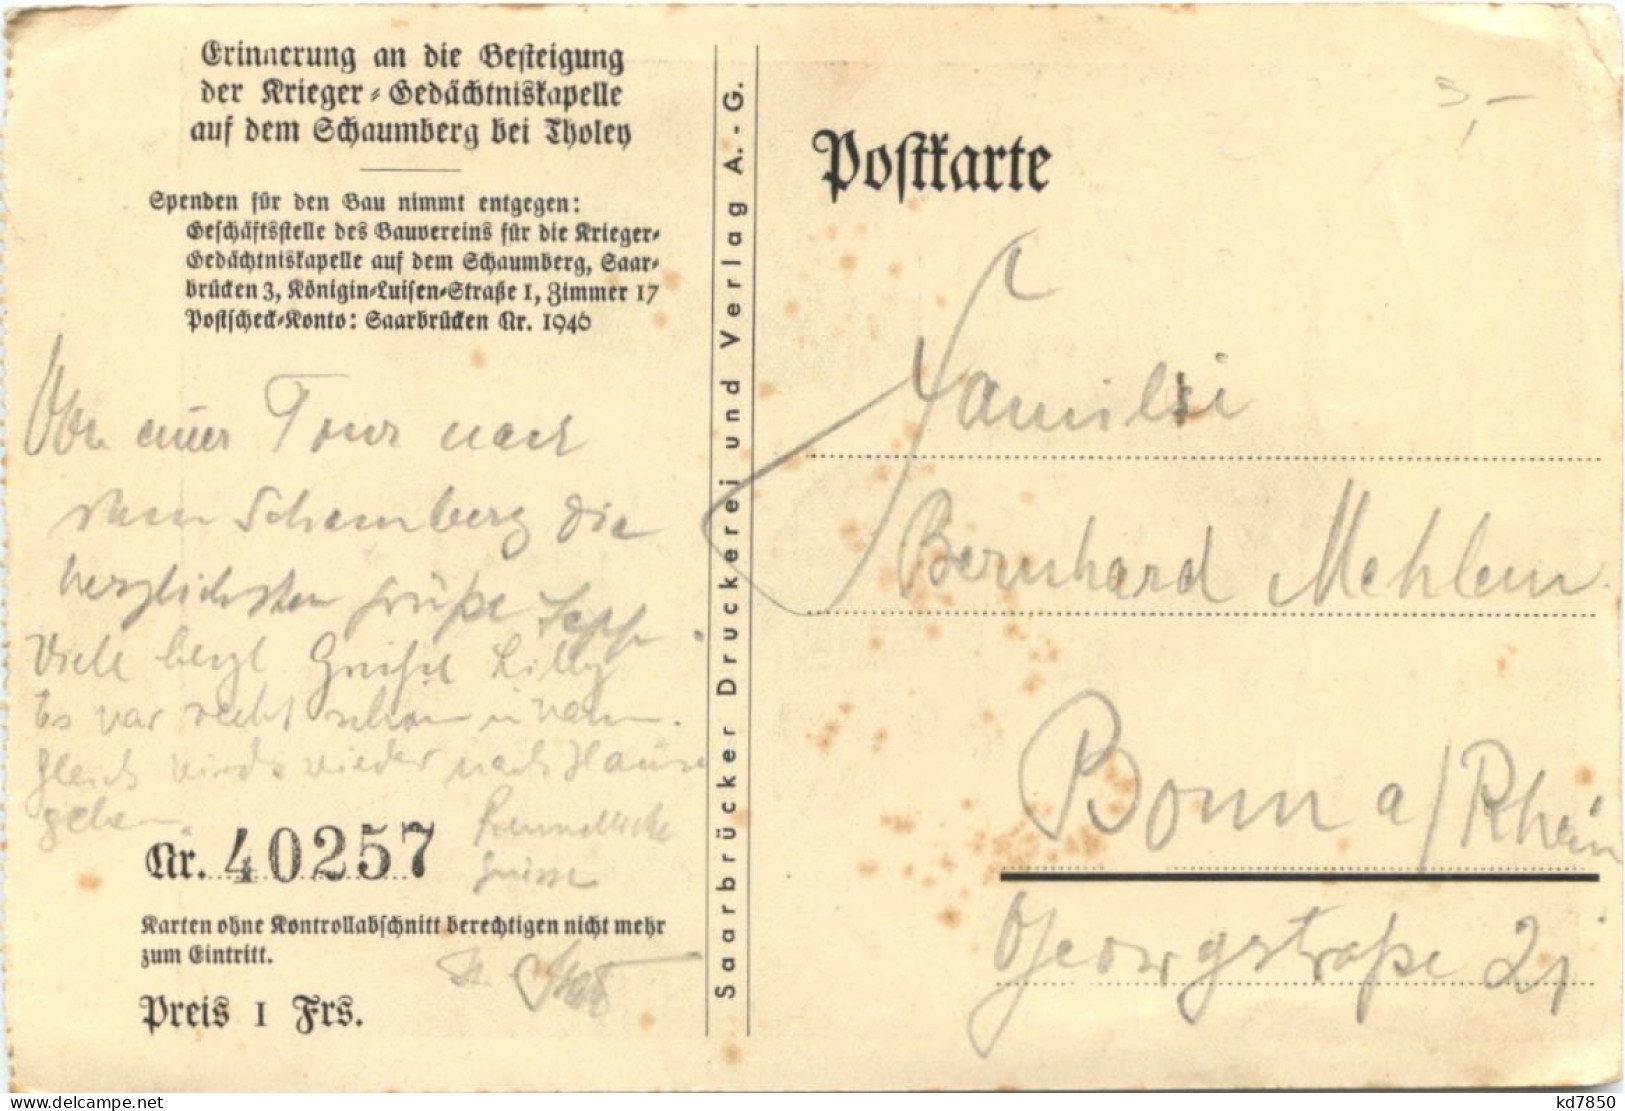 Erinnerung an die Besteigung
der Krieger-Gedächtniskapelle
auf dem Schaumberg bei Tholey
Spenden für den Bau nimmt entgegen:
Geschäftsstelle des Bauvereins für die Krieger-
Gedächtniskapelle auf dem Schaumberg, Saar-
brücken 3, Königin-Luisen-Straße 1, Zimmer 17
Postscheck-Konto: Saarbrücken Nr. 1946
Von einer Tour nach
dem Schaumberg die
herzlichsten Grüße
Viele herzl Grüße Lilly
Es war recht schön u warm.
Gleich wirds wieder nach Hause
gehen.
Freundliche
Grüsse
Nr. 40257
Karten ohne Kontrollabschnitt berechtigen nicht mehr
zum Eintritt.
Preis 1 Frs.
Saarbrücker Druckerei und Verlag A.-G.
3,-
Postkarte
Familie
Bernhard Mehlem
Bonn a/Rhein
Georgstraße 21
kd7850